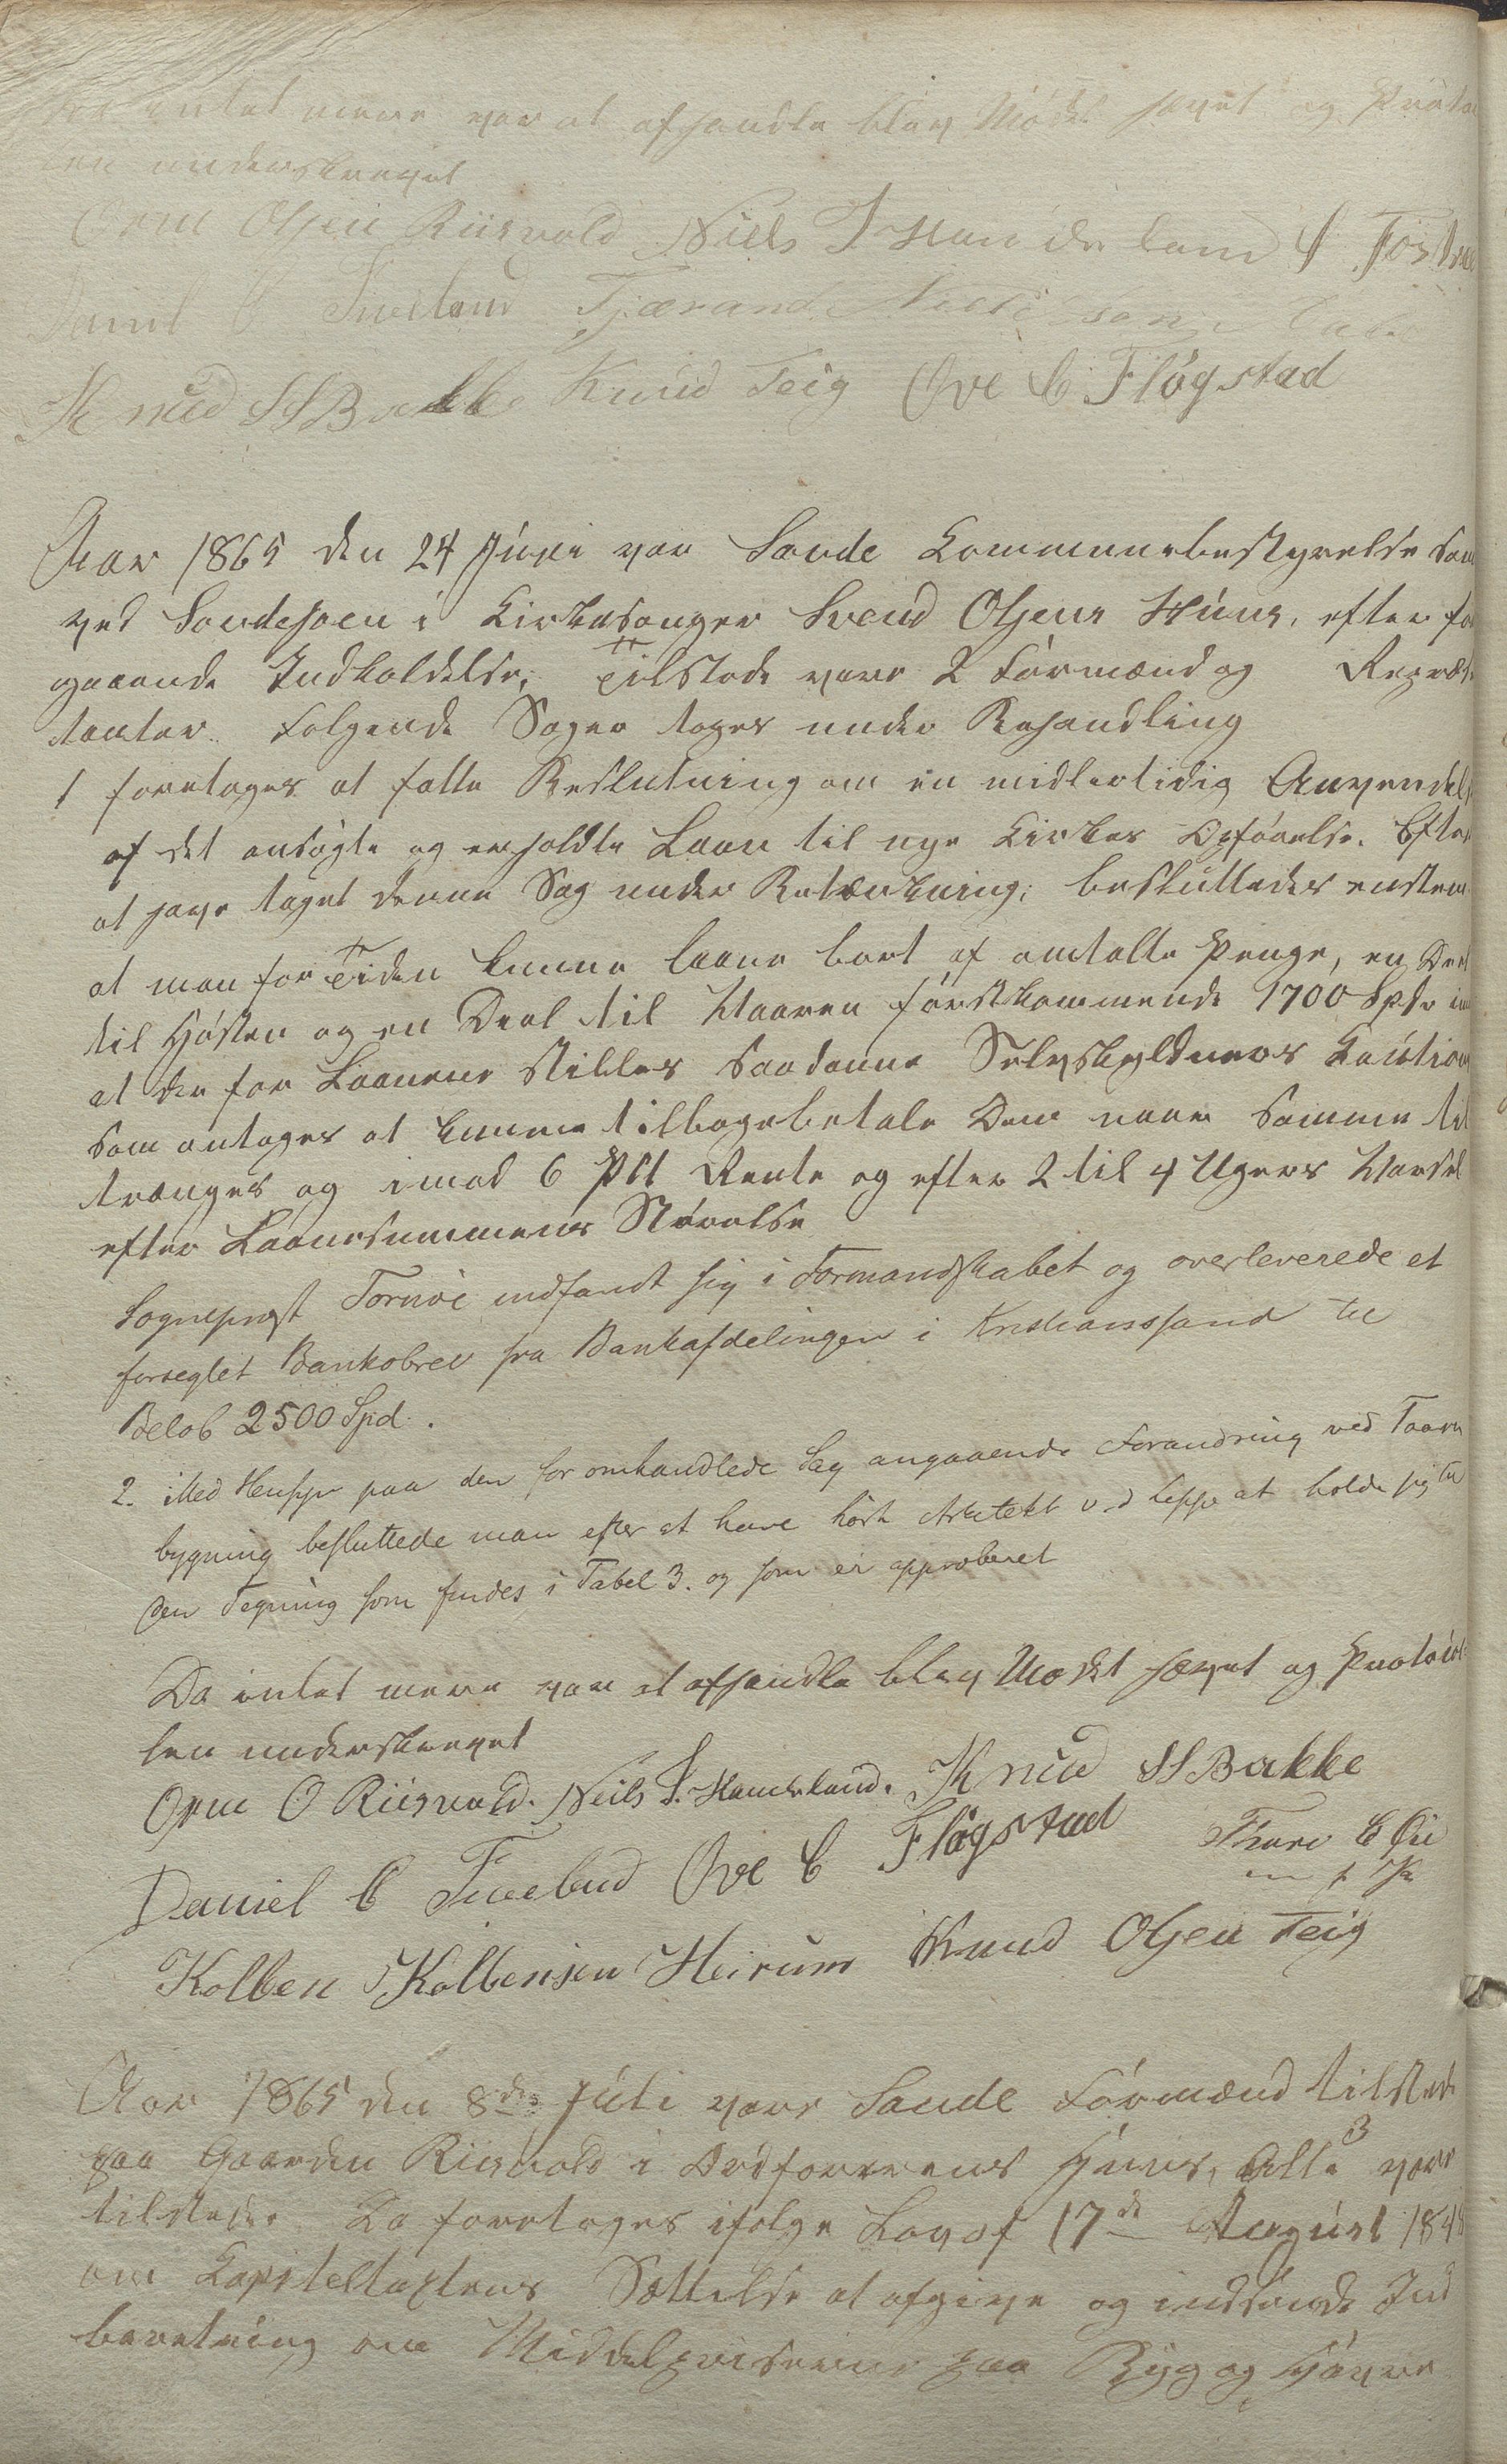 intet mere var at afhandle blev Mödet hævet og Proto
len underskrevet
Orm Olsen Riisvold Niels J Handeland
Daniel Tveitend Tjærand
Knud SS Bakke Knud Teig Ove C Flögstad
Aar 1865 den 24 Júni var Sande Communebestyrelse sam
ved Sandejoen i Kirkesanger Svend Olsens Húús, efter for
gaaende Indkaldelse, Tilstede vare 2 Formænd og Repræse
tanter. Følgende Sager toges under Behandling
1 foretoges at fatte Beslutning om en midlertidig Anvendels
af det ansögte og erholdte Laan til nye Kirkes Opförelse. Efter
at have taget denne Sag under Betænkning, besluttedes enstem
at man for Tiden kunne laane bort af omtalte Penge, en Deel
til Hösten og en Deel til Vaaren förstkommende 1700 Spdr im
at der for Laanene stilles saadanne Selvskyldners Caútion
som antages at kunne tilbagebetale Dem naar samme til
trænges og imod 6 pCt Rente og efter 2 til 4 Ugers Varsel
efter Laanesummens Störelse
Sognepræst Tornöe indfandt sig i Formandskabet og overleverede et
forseglet Bankobrev fra Bankafdelingen i Kristianssand til
Beløb 2500 Spd.
2. Med Hensyn paa den för omhandlede Sag angaaende Forandring ved Taarn
bygning besluttede man efter at have hört Arkitekt v.d Lippe at holde sig til
den Tegning som findes i Tabel 3. og som er approberet
Da intet mere var at afhandle blev Mödet hævet og Protocol
len underskrevet
Orm O Riisvold. Neils J. Handeland. Knud SS Bakke
Daniel C Tveitend Ove C Flögstad Thore E Øie
m f P
Kolben Kolbensen Heirum Knud Olsen Teig
Aar 1865 den 8de Júli vare Sande Formænd tilstede
paa Gaarden Riisvold i Ordförerens Húús, Alle 3 vare
tilstede. Da foretoges ifølge Lov af 17de August 184
om Kapiteltaxtens Sættelse at afgive og indsende Ind
beretning om Middelpriserne paa Byg og Havre